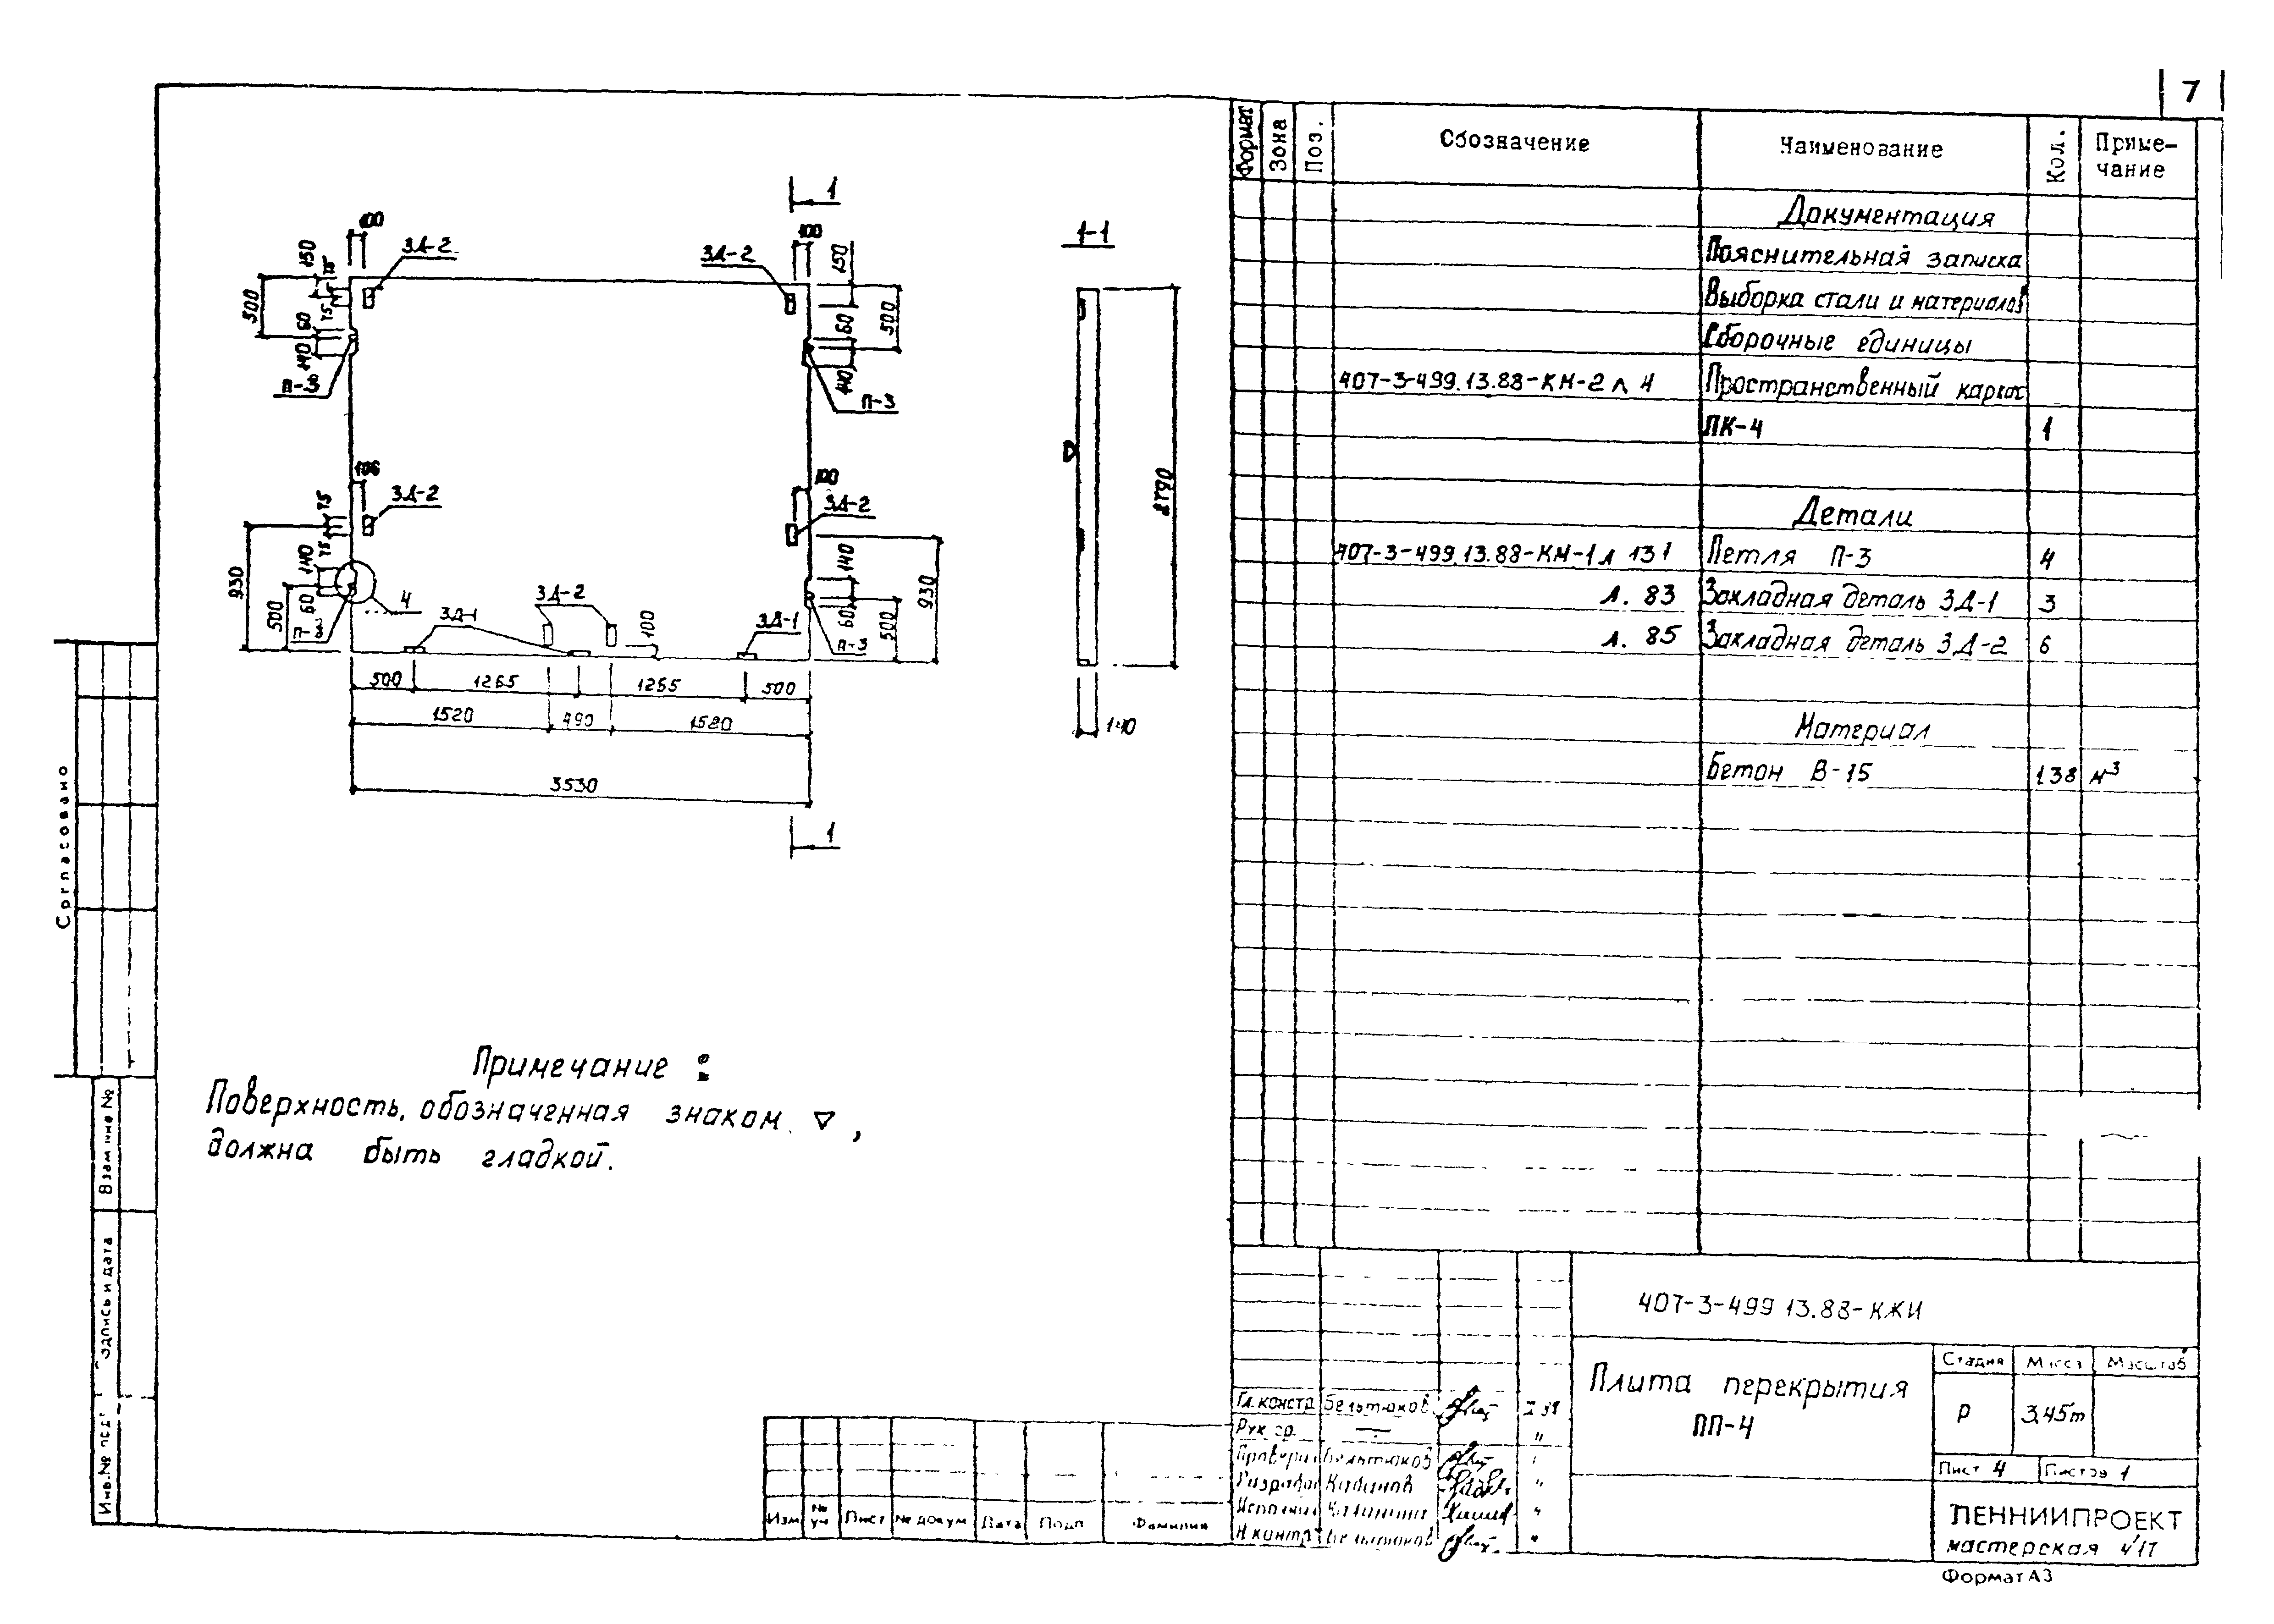 7
Формат
Зона
Поз.
Обозначение
Наименование
Кол.
Приме-
чание
Документация
Пояснительная записка
Выборка стали и материалов
Сборочные единицы
407-3-499.13.88-КМ-2 л 4 Пространственный каркас
ПК-4 1
Детали
407-3-499.13.88-КМ-1 л 131 Петля П-3 4
л. 83 Закладная деталь ЗД-1 3
л. 85 Закладная деталь ЗД-2 6
Материал
Бетон В-15 1.38 м³
1
100
ЗД-2
ЗД-2
100
1-1
150
75
75
500
60
140
П-3
150
60
500
140
П-3
106
ЗД-2
75
75
100
ЗД-2
930
140
60
500
П-3
4
ЗД-1
ЗД-2
100
ЗД-1
140
60
500
930
П-3
2790
500 1265 1265 500
1520 490 1520
140
3530
1
Примечание :
Поверхность, обозначенная знаком ▽,
должна быть гладкой.
Согласовано
Взам инв №
Подпись и дата
Инв.№ подл
407-3-499 13.88-КЖИ
Плита перекрытия
ПП-4
Стадия Масса Масштаб
Р 3.45т
Лист 4 Листов 1
ЛЕННИИПРОЕКТ
мастерская №17
Формат А3
Гл. констр Бельтюков
Рук. гр. — "
Провери Бельтюков "
Разработ "
Исполни "
Н. контр Бельтюков "
Изм № уч Лист № докум Дата Подп Фамилия